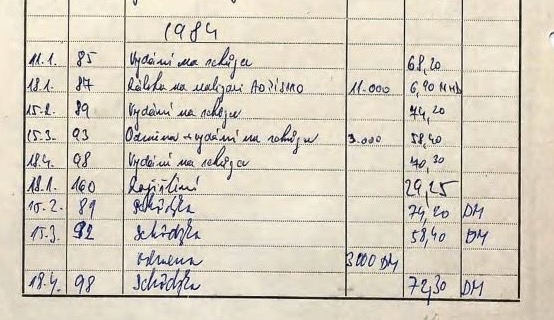 1984
11.1. 85 Vydání na schůzce 68,20
18.1. 87 na 11.000 6,90
15.2. 89 Vydání na schůzce 74,20
15.3. 93 Odměna + vydání na schůzce 3.000 58,40
18.4. 98 Vydání na schůzce 70,30
18.1. 160 Zajištění 29,25
15.2. 89 schůzka 74,20 DM
15.3. 92 schůzka 58,40 DM
odmena 3000 DM
18.4. 98 schůzka 72,30 DM